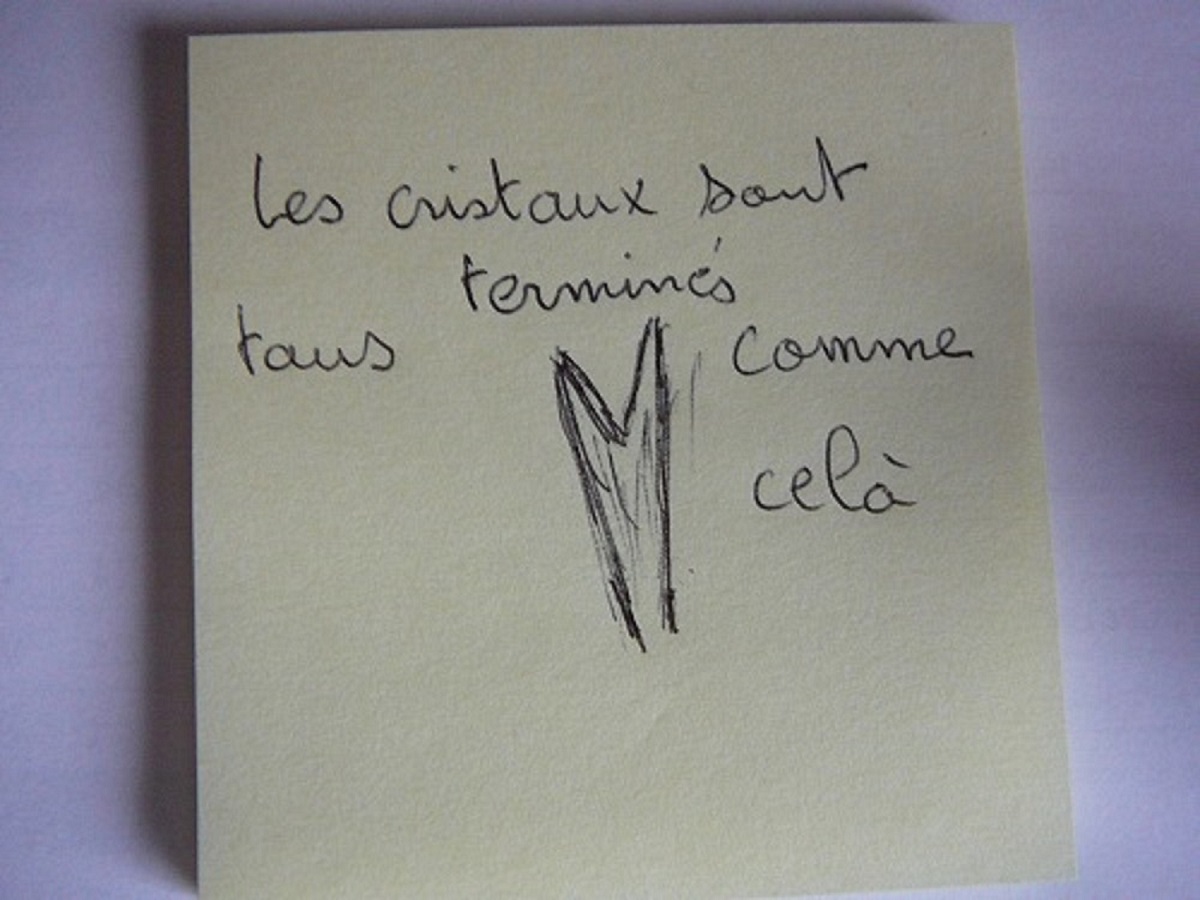 Les cristaux sont
terminés
tous comme
celà